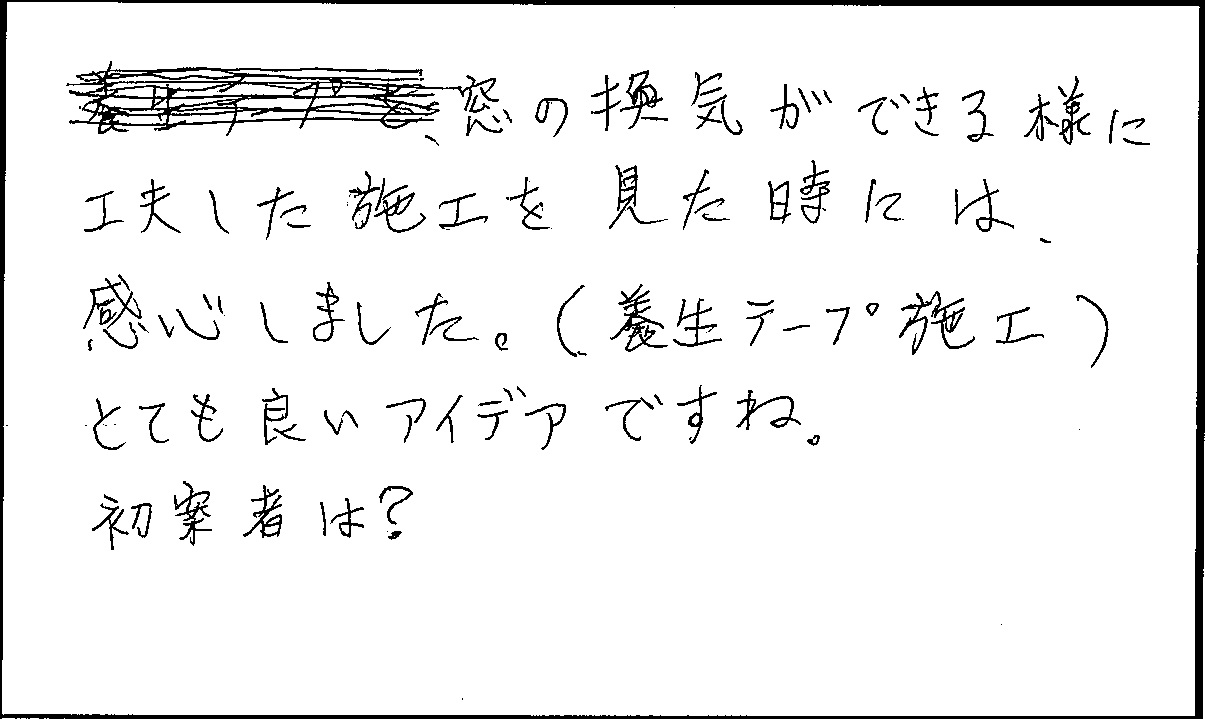 窓の換気ができる様に
工夫した施工を見た時には、
感心しました。(養生テープ施工)
とても良いアイデアですね。
初案者は?